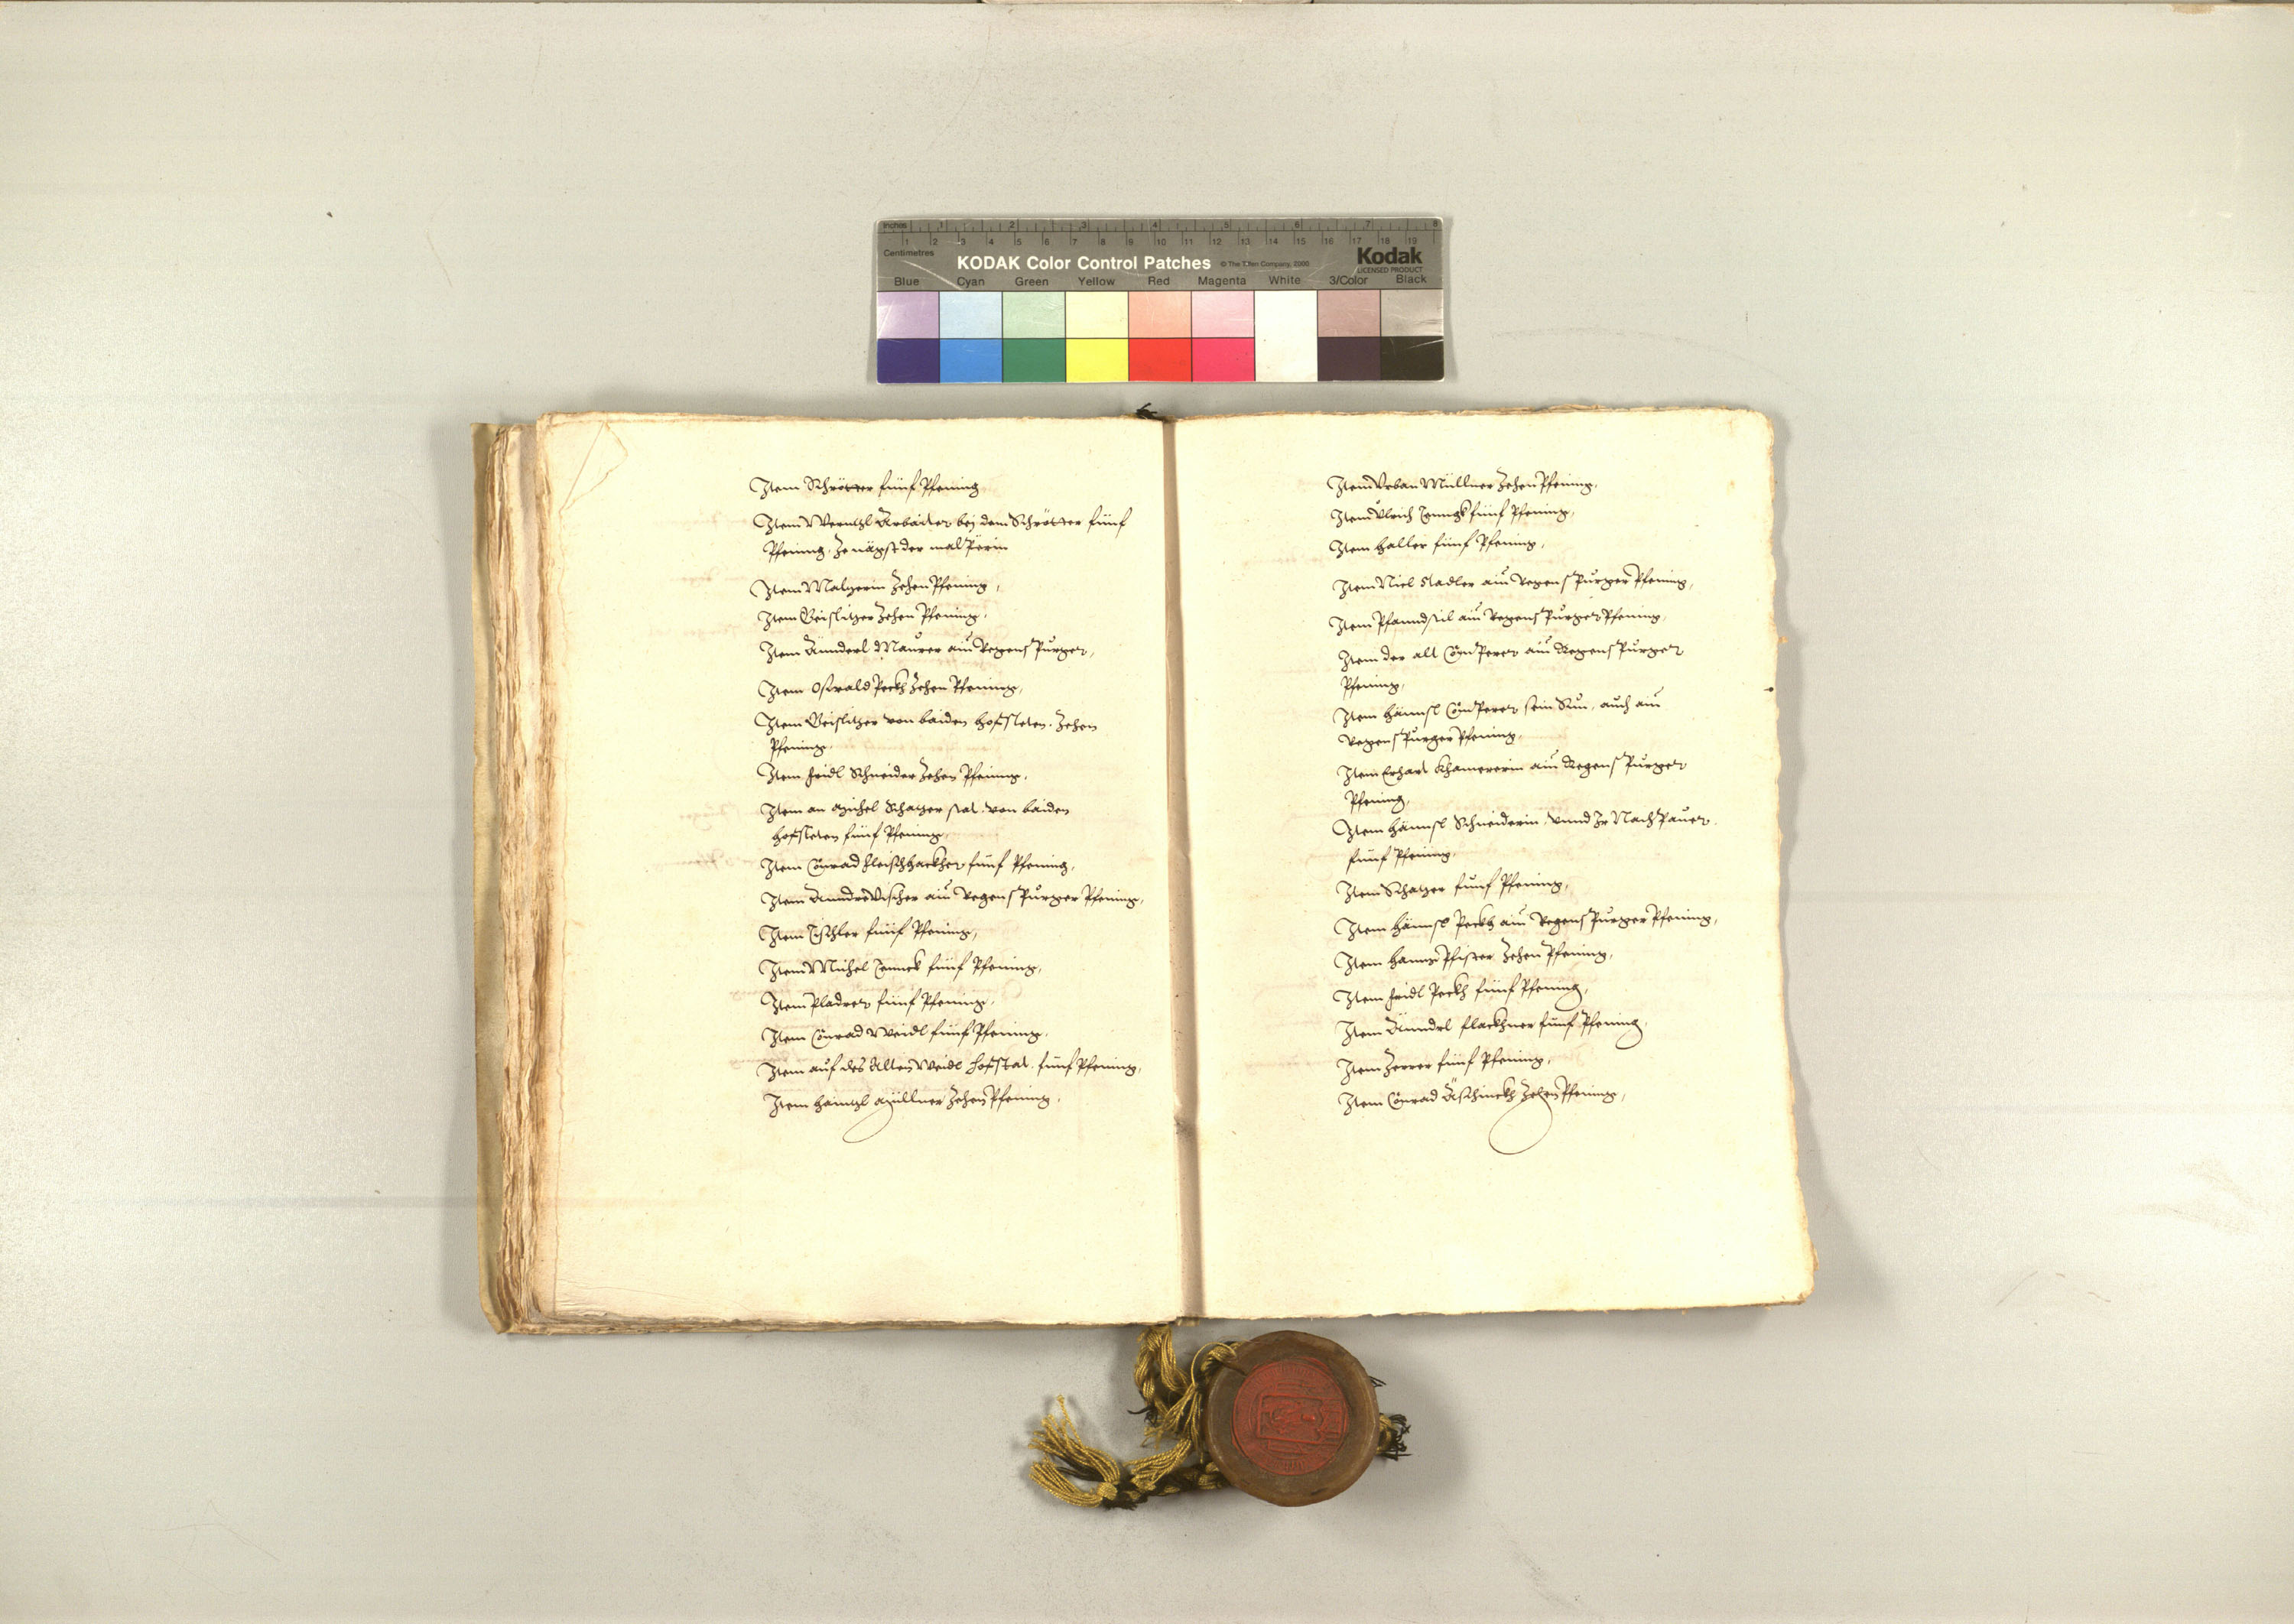 Inches 1 2 3 4 5 6 7 8
1 2 3 4 5 6 7 8 9 10 11 12 13 14 15 16 17 18 19
Centimetres
KODAK Color Control Patches © The Tiffen Company, 2000 Kodak
LICENSED PRODUCT
Blue Cyan Green Yellow Red Magenta White 3/Color Black
Item Schrötter fünf Pfening
Item Wentzl Arbaiter bej dem Schrötter fünf
Pfening, ze nägst der
Item Maltzerin Zehen Pfening,
Item Geislitzer Zehen Pfening,
Item Ännderl Maurer ain Regenspurger,
Item Oswald Peckh Zehen Pfening,
Item Geislitzer von baiden Hofsteten Zehen
Pfening,
Item Fridl Schneider Zehen Pfening,
Item an Michel Schatzer stat von baiden
Hofsteten fünf Pfening,
Item Conrad Fleischhackher fünf Pfening,
Item Anndre Vischer ain Regenspurger Pfening,
Item Tischler fünf Pfening,
Item Michel fünf Pfening,
Item Pladrer fünf Pfening,
Item Conrad Weidl fünf Pfening,
Item auf des Alten Weidl Hofstat fünf Pfening,
Item Haintzl Müllner Zehen Pfening,
Item Urban Müllner Zehen Pfening,
Item Ulrich fünf Pfening,
Item Haller fünf Pfening,
Item Nicl Stadler ain Regenspurger Pfening,
Item Pfanndstil ain Regenspurger Pfening,
Item der alt ain Regenspurger
Pfening,
Item Hännsl sein Sun, auch ain
Regenspurger Pfening,
Item Erhart Khamererin ain Regenspurger
Pfening,
Item Hännsl Schneiderin, vnnd Ir Nachpauer
fünf Pfening,
Item Schatzer fünf Pfening,
Item Hännsl Peckh ain Regenspurger Pfening,
Item Hanns Pfister Zehen Pfening,
Item Fridl Peckh fünf Pfening,
Item Änndrl Flackhner fünf Pfening,
Item Zerrer fünf Pfening,
Item Conrad Äschinckh Zehen Pfening,